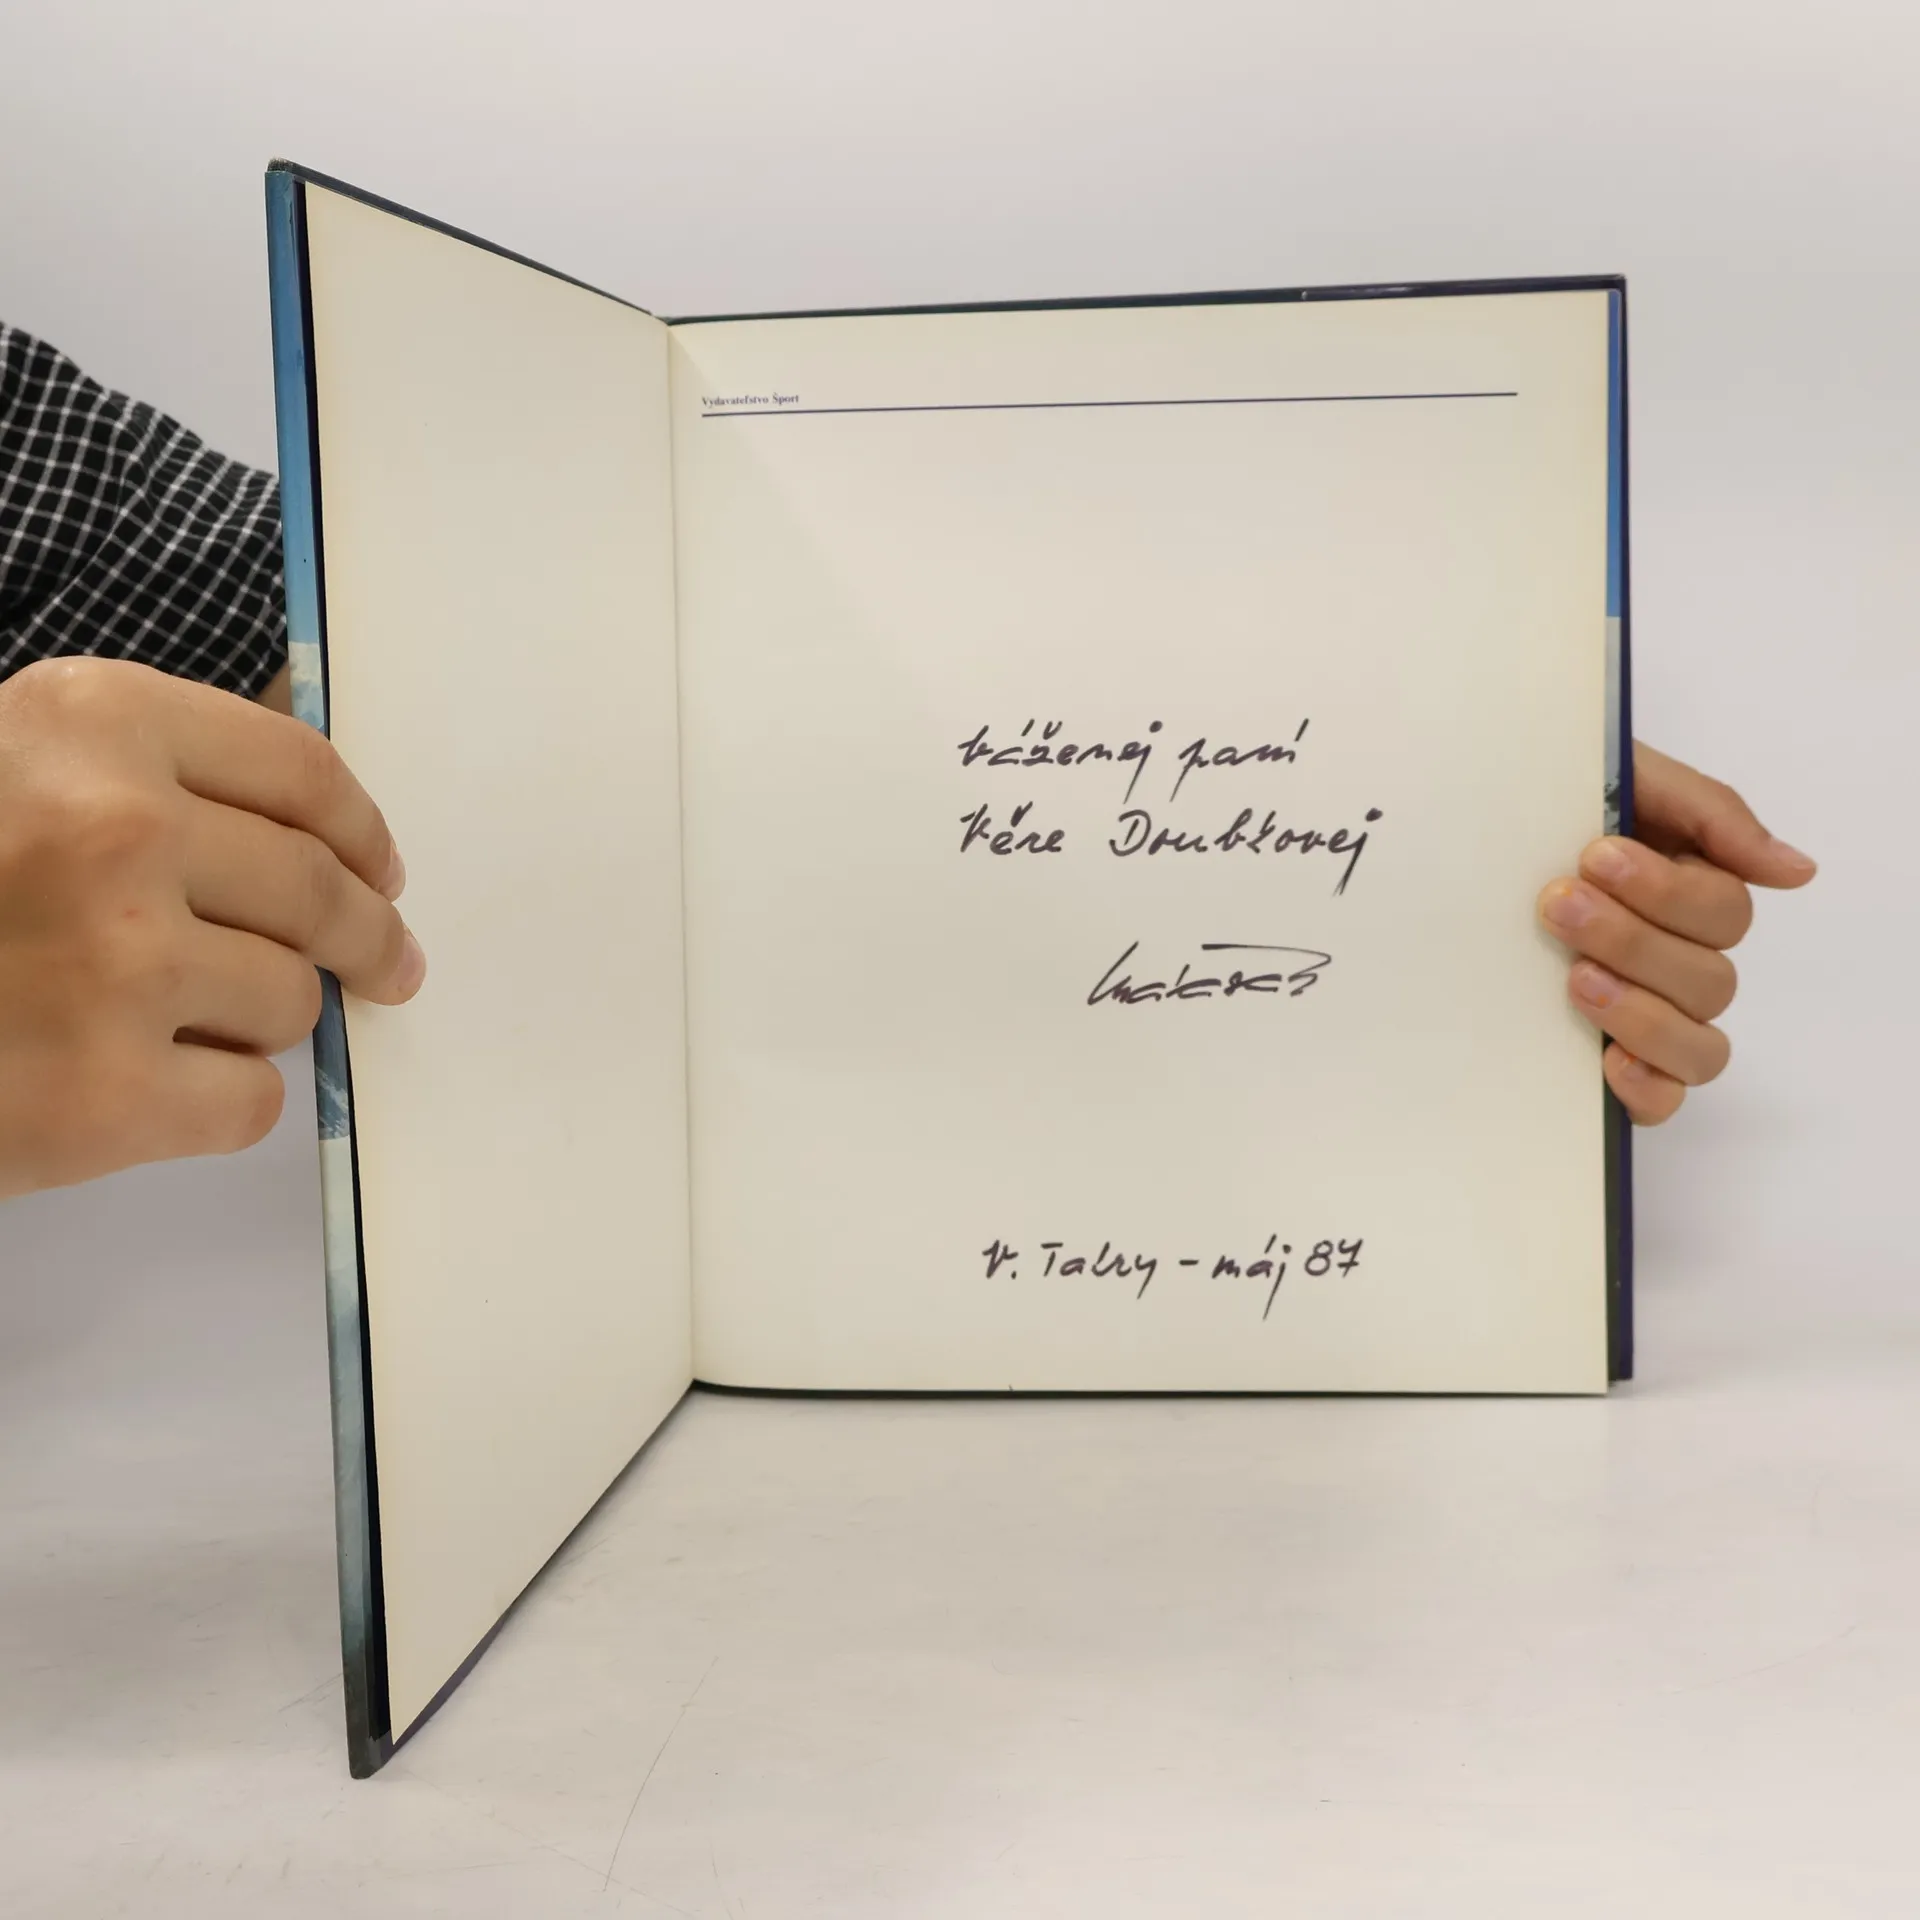 Vydavateľstvo Šport
Váženej paní
Věre Doubkovej
V. Tatry - máj 87